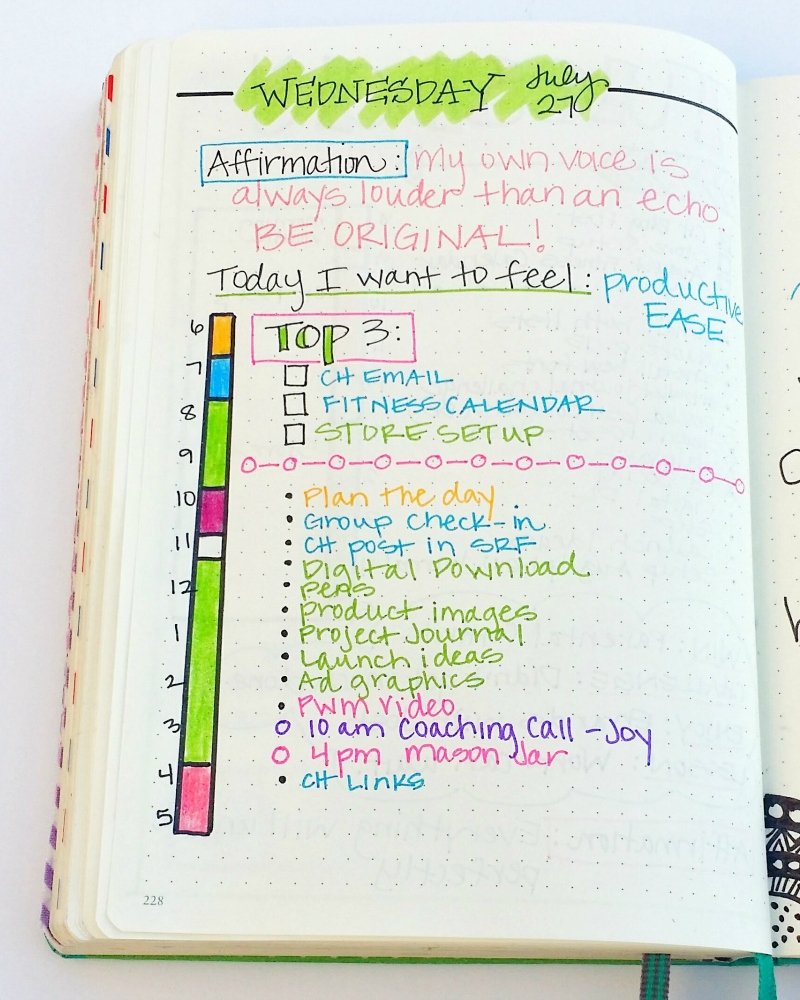 WEDNESDAY July 27
Affirmation: my own voice is
always louder than an echo.
BE ORIGINAL!
Today I want to feel: productive
EASE
6
7
8
9
10
11
12
1
2
3
4
5
Top 3:
CH EMAIL
FITNESS CALENDAR
STORE SETUP
• Plan the day
• Group check-in
• CH post in SRF
• Digital Download
• PEAS
• Product images
• Project Journal
• Launch ideas
• Ad graphics
• PWM Video
o 10 am Coaching Call - Joy
o 4pm mason Jar
• CH Links
228